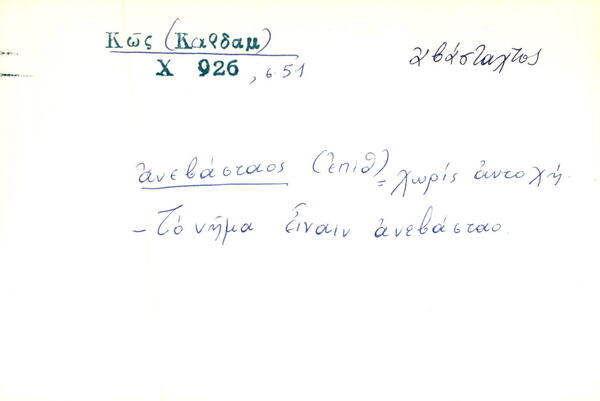 Κῶς (Καρδαμ)
Χ 926, σ. 51
ἀβάσταχτος
ἀνεβάσταος (ἐπίθ) = χωρίς ἀντοχή.
- Τό νῆμα εἶναιν ἀνεβάσταο.